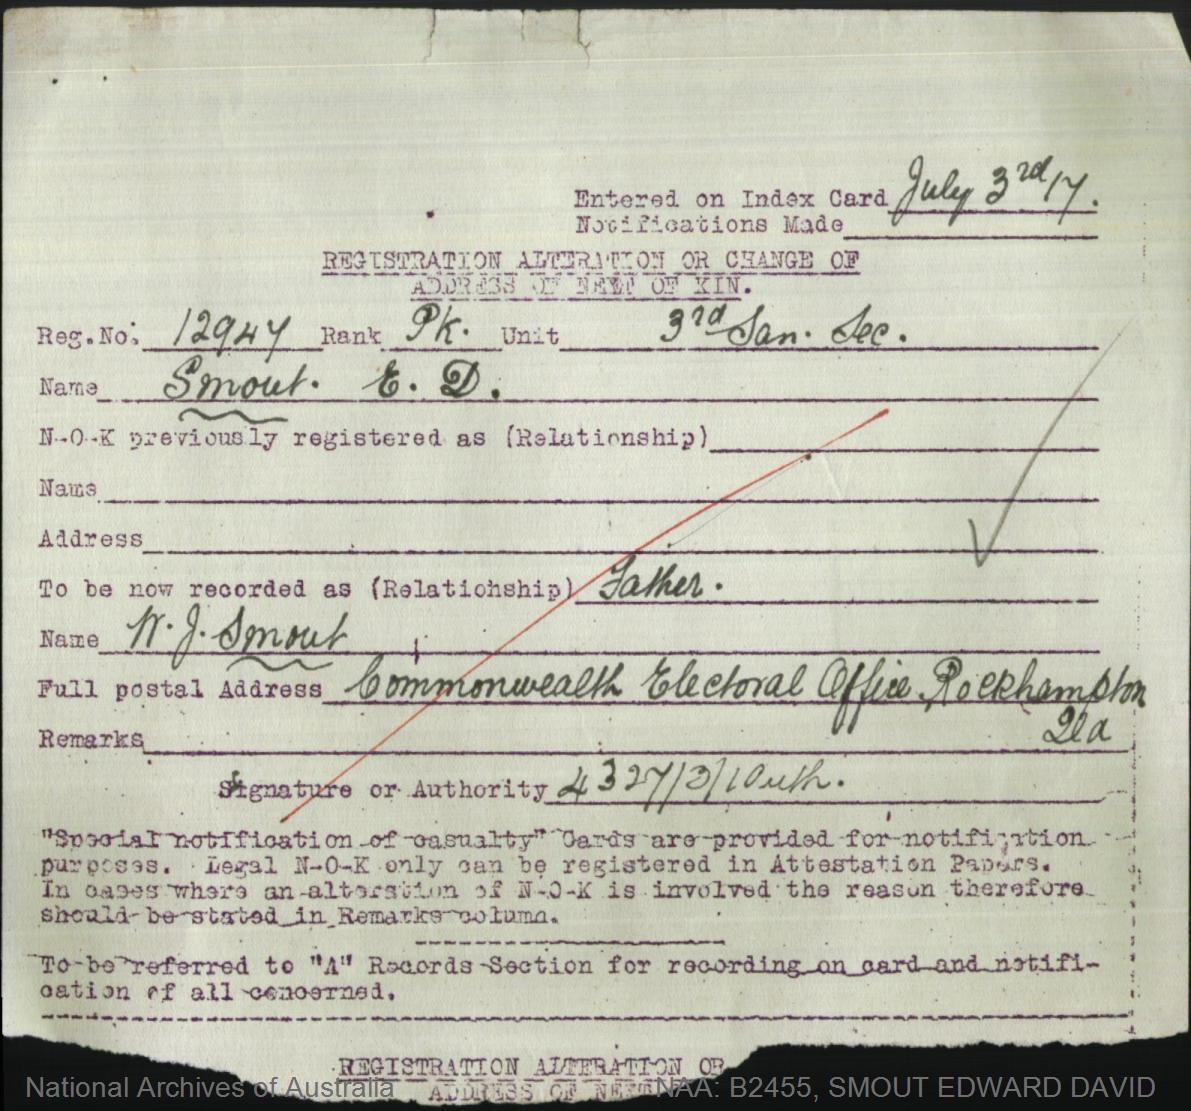 Entered on Index Card July 3rd/17.
Notifications Made
REGISTRATION ALTERATION OR CHANGE OF
ADDRESS OF NEXT OF KIN.
Reg.No. 12947 Rank Pk. Unit 3rd San. Sec.
Name Smout. E. D.
N-O-K previously registered as (Relationship)
Name
Address
To be now recorded as (Relationship) Father.
Name W. J. Smout
Full postal Address Commonwealth Electoral Office Rockhampton
Qld
Remarks
Signature or Authority 4327/3/10
"Special notification of casualty" Cards are provided for notification
purposes. Legal N-O-K only can be registered in Attestation Papers.
In cases where an alteration of N-O-K is involved the reason therefore
should be stated in Remarks column.
To be referred to "A" Records Section for recording on card and notifi-
cation of all concerned.
REGISTRATION ALTERATION OR
ADDRESS OF NEXT
National Archives of Australia NAA: B2455, SMOUT EDWARD DAVID